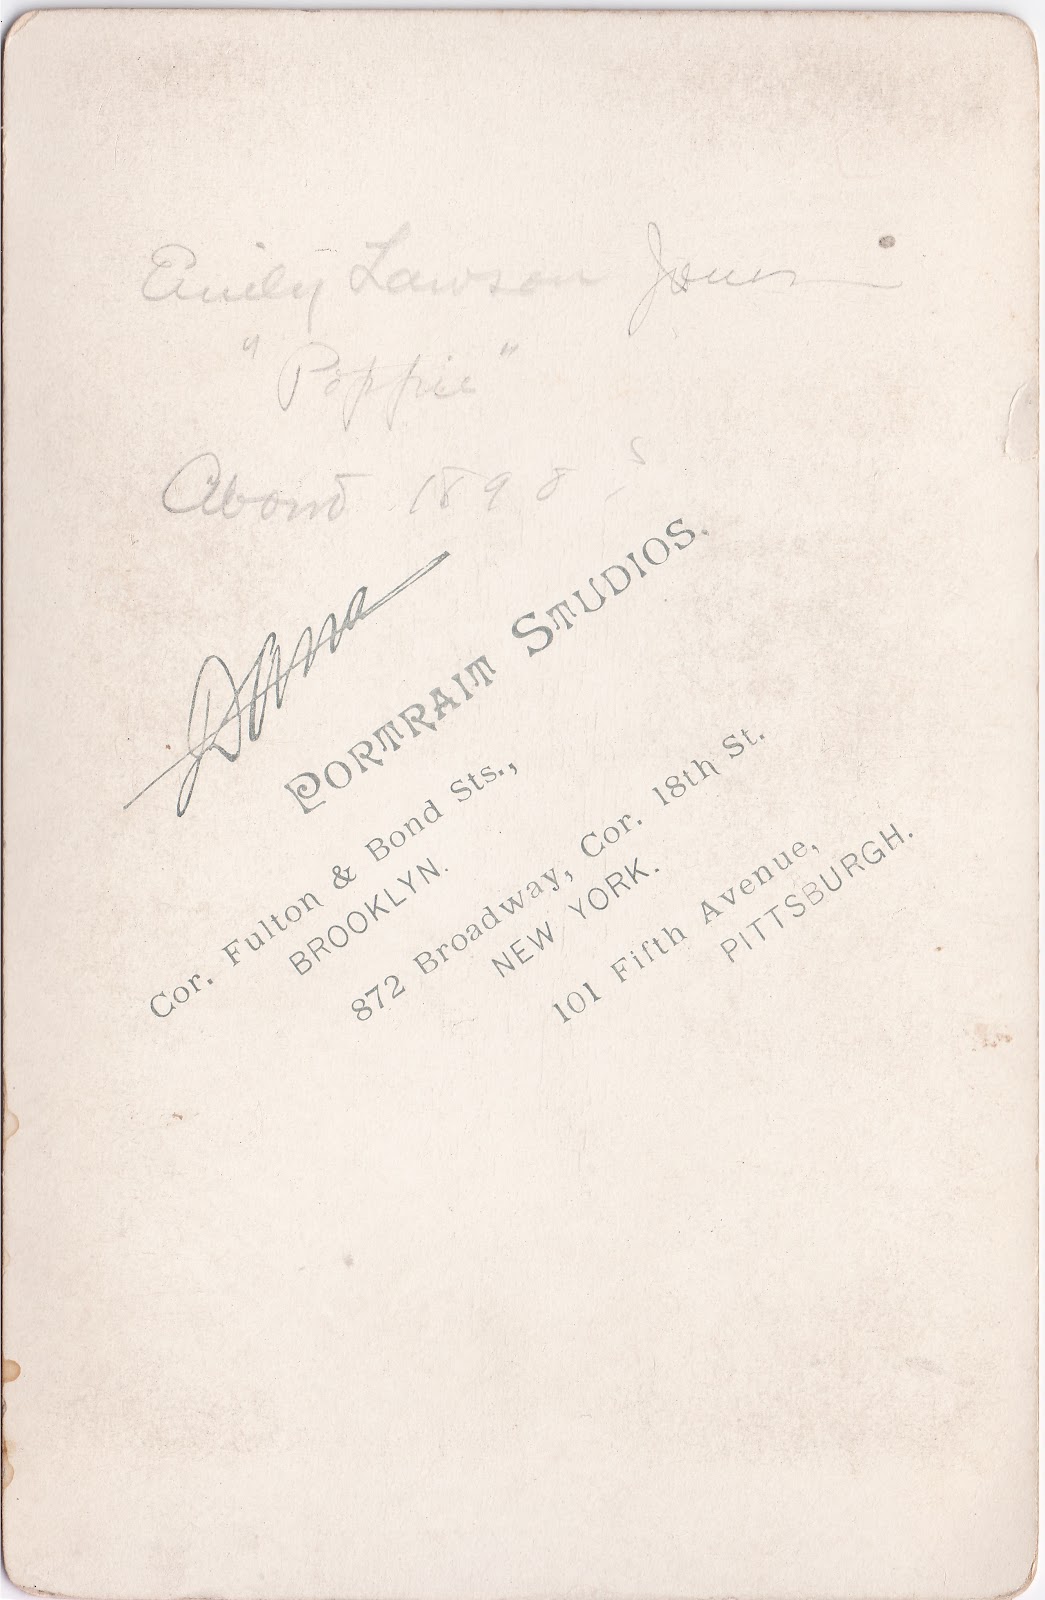 Emily Lawson Jones
"Poppie"
About 1898 ?
Dana
PORTRAIT STUDIOS.
Cor. Fulton & Bond Sts.,
BROOKLYN.
872 Broadway, Cor. 18th St.
NEW YORK.
101 Fifth Avenue,
PITTSBURGH.